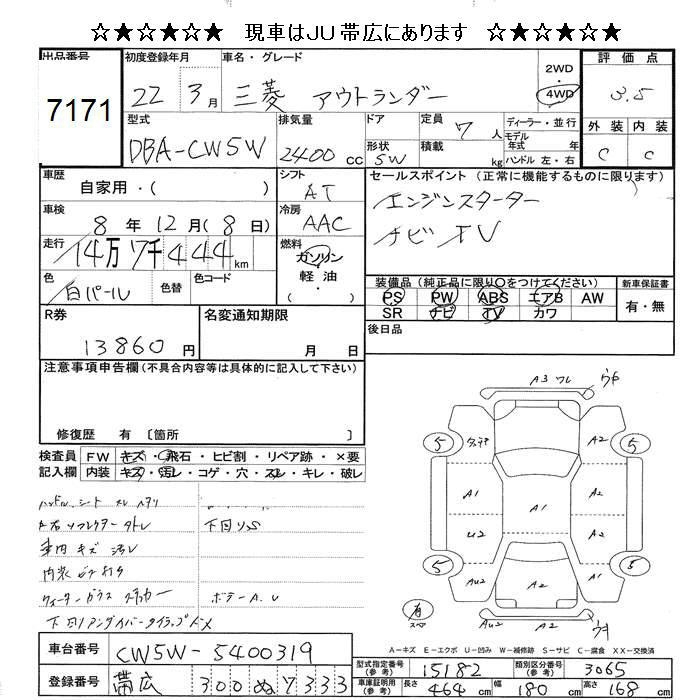 ☆★☆★☆★ 現車はＪＵ帯広にあります ☆★☆★☆★
出品番号 初度登録年月 車名・グレード 2WD・4WD 評価点
7171 22年3月 三菱 アウトランダー 3.5
型式 排気量 ドア 定員 7人 ディーラー・並行 外装 内装
DBA-CW5W 2400cc 形状 5W 積載 kg モデル年式 年式 ハンドル 左・右 C C
車歴 自家用・( ) シフト AT セールスポイント (正常に機能するものに限ります)
車検 8年12月(8日) 冷房 AAC エンジンスターター
走行 14万7千444km 燃料 ガソリン・軽油・( ) ナビ TV
色 白パール 色替 色コード 装備品 (純正品に限り○をつけてください) 新車保証書
PS PW ABS エアB AW 有・無
SR ナビ TV カワ
R券 13860円 名変通知期限 月 日 後日品
注意事項申告欄(不具合内容等は具体的に記入して下さい)
修復歴 有 〔箇所 〕
検査員 FW キズ・飛石・ヒビ割・リペア跡・×要
記入欄 内装 キズ・汚レ・コゲ・穴・スレ・キレ・破レ
ハンドル、シート スレ ヘタリ
左右リフレクター ワレ
車内 キズ 汚レ 下回リS
内装ビケ打り
ボデーA.U
A3 ワレ
5 A2 5
A1 A1 A2
U2 A2
5 AU2 A2 A1 5
有 スペア AU2 A2
A－キズ E－エクボ U－凹み W－補修跡 S－サビ C－腐食 XX－交換済
車台番号 CW5W-5400319
登録番号 帯広 300 ぬ 7333
型式指定番号(参考) 15182 類別区分番号(参考) 3065
車庫証明用(参考) 長さ 464cm 幅 180cm 高さ 168cm